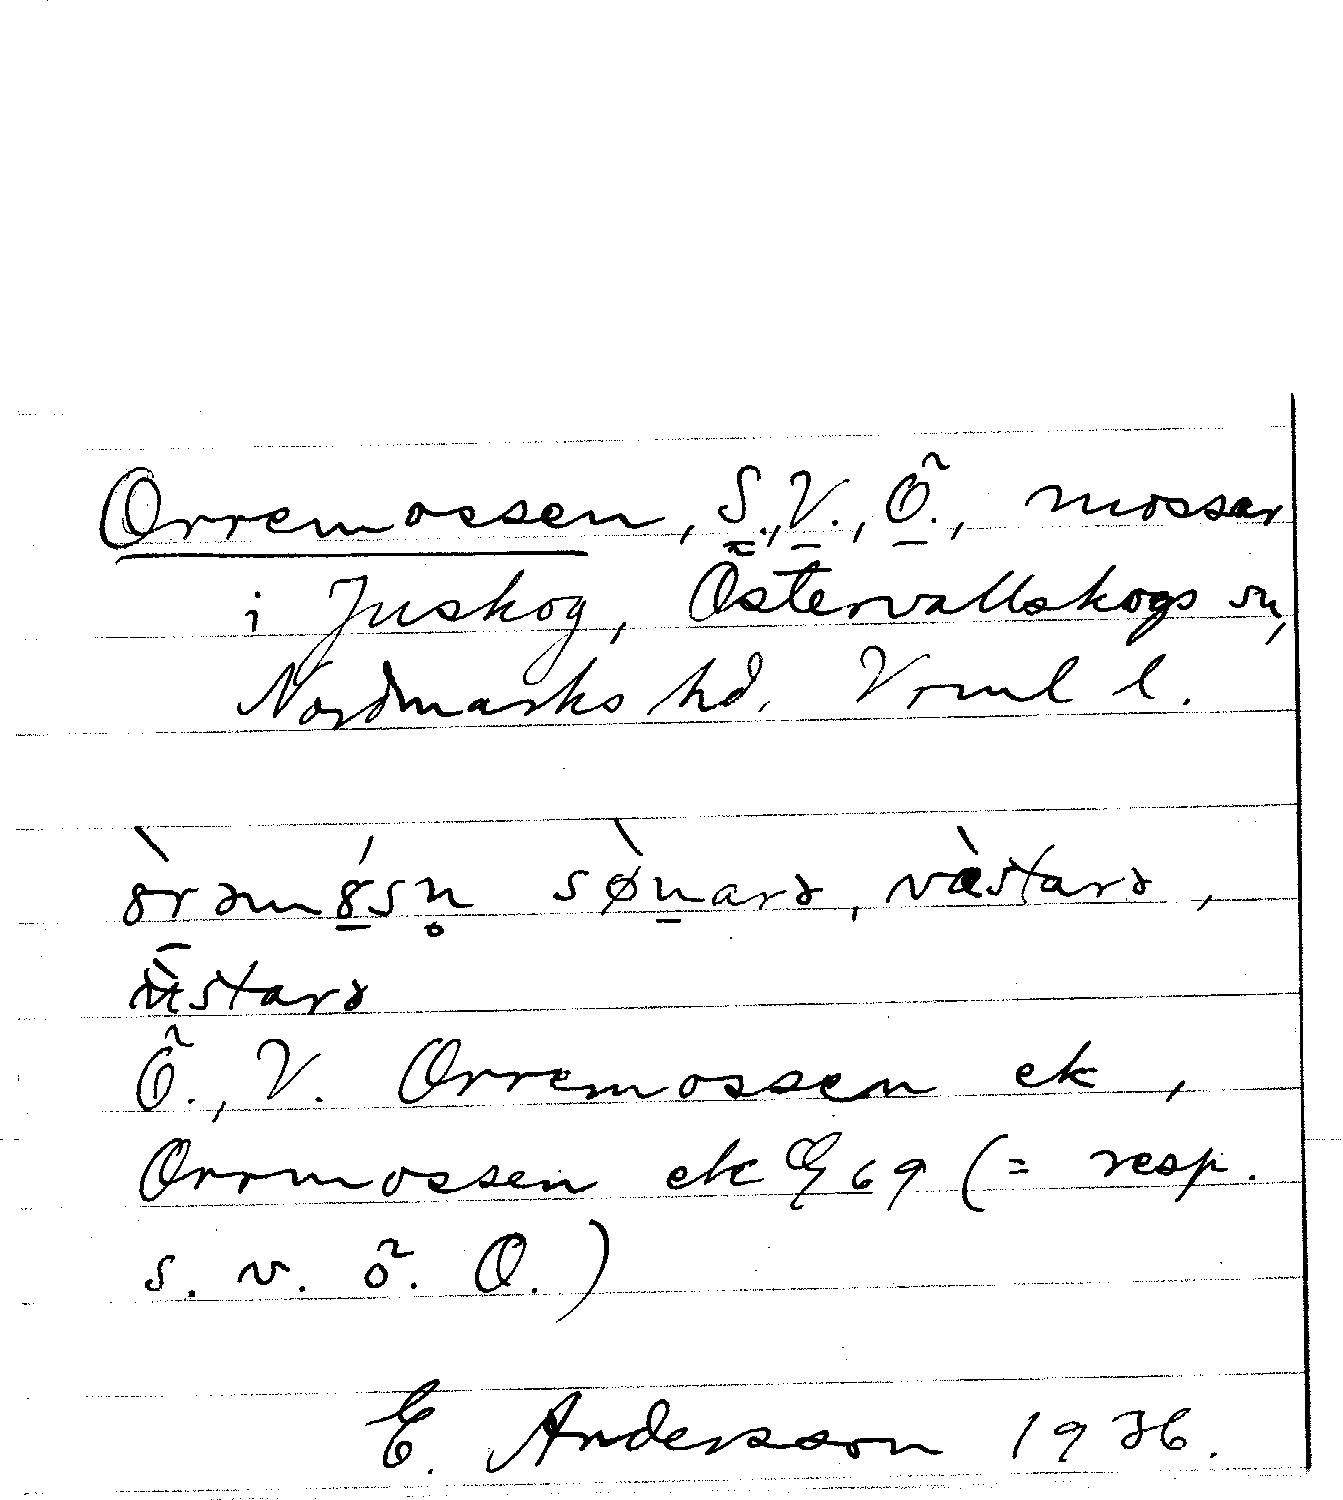 Orremossen, S., V., Ö., mossar
i Juskog, Östervallskogs sn,
Nordmarks hd. Vrml l.
sønarə, västarə,
Ö., V. Orremossen ek,
Orrmossen ek G 69 (= resp.
s. v. ö. O.)
E. Andersson 1936.